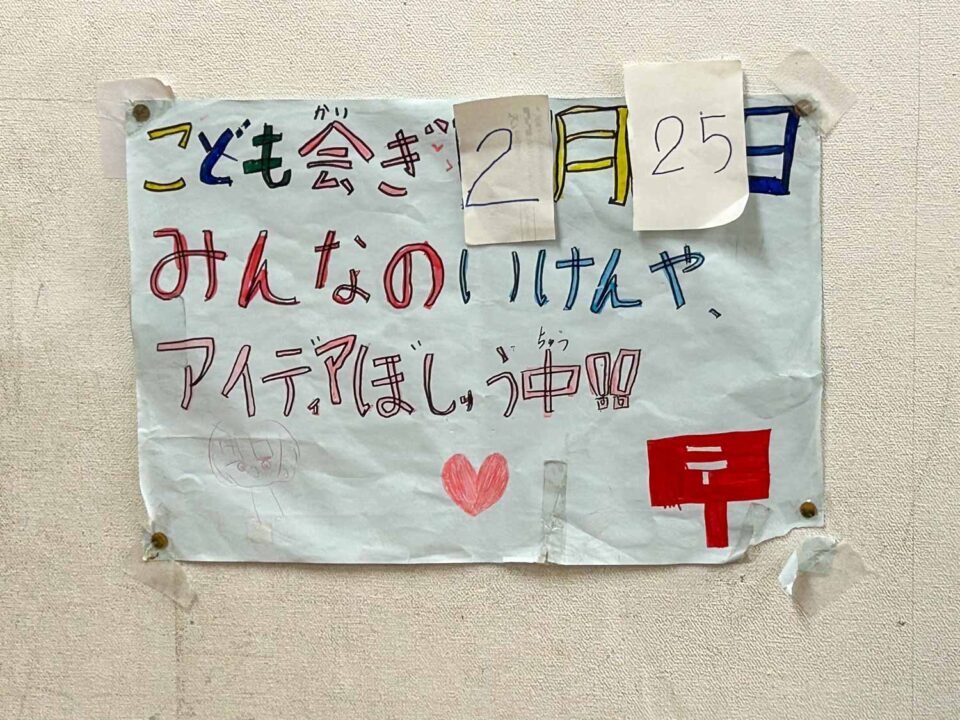 こども会ぎ 2月25日
みんなのいけんや、
アイディアぼしゅう中!!